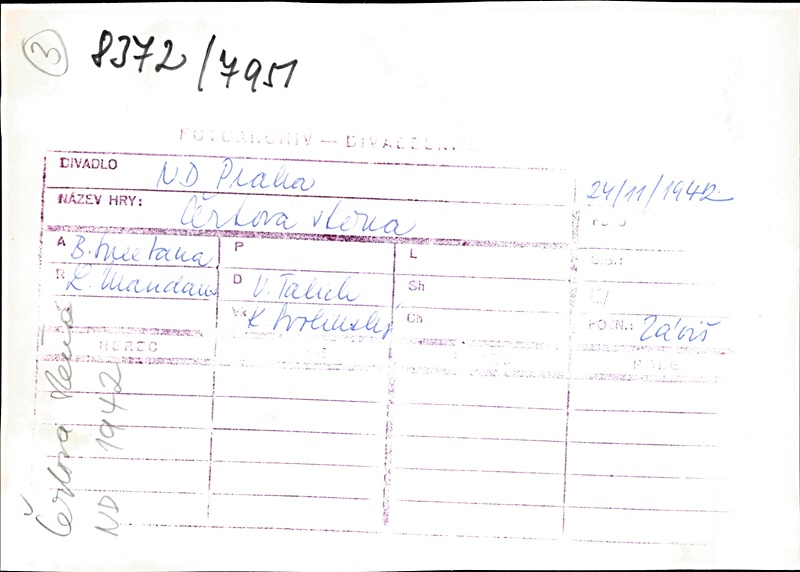 3
8372/7951
FOTOARCHIV — DIVADELNÍ
DIVADLO ND Praha
24/11/1942
NÁZEV HRY: Čertova stěna
A B. Smetana P L
R L. Mandaus D V. Talich Sh
VK K. Svolinský Ch
POZN.: Záviš
HEREC
ROLE
Čertova stěna
ND 1942